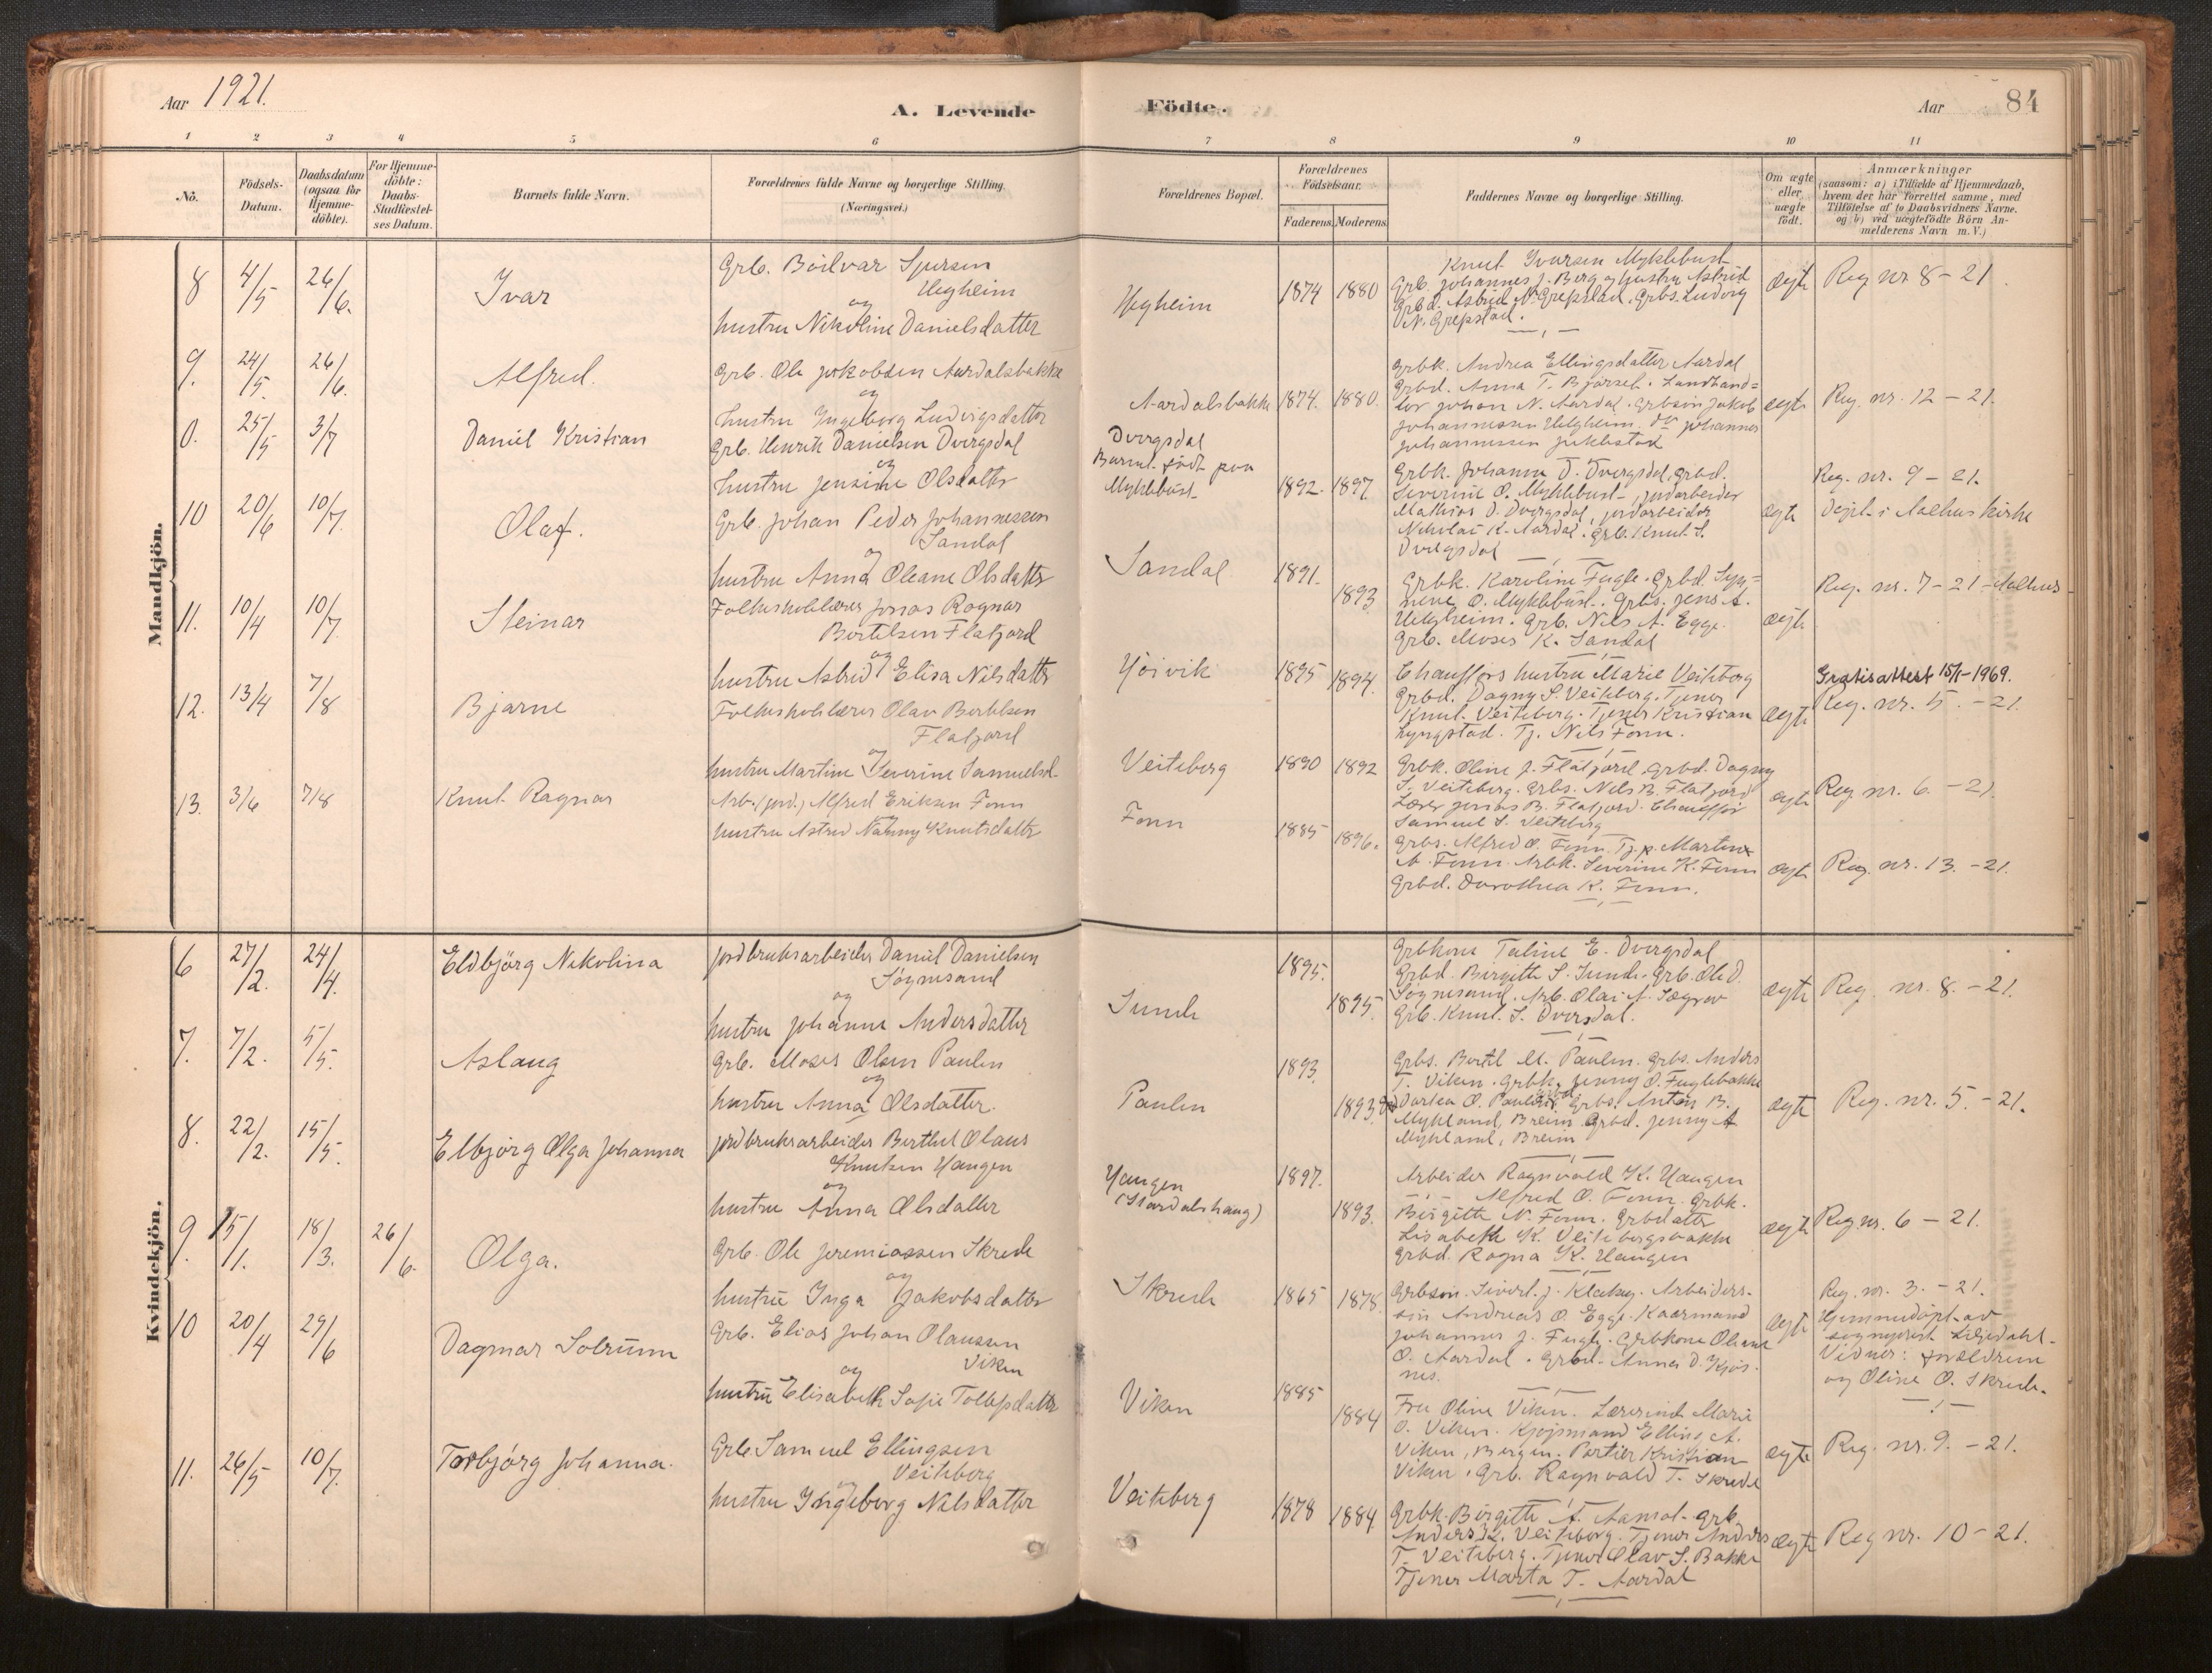 Aar 1921.
A. Levende
Födte.
Aar 84
1 2 3 4 5 6 7 8 9 10 11
No.
Födsels-
Datum.
Daabsdatum
(ogsaa for
Hjemme-
döbte).
For Hjemme-
döbte:
Daabs-
Stadfæstel-
ses Datum.
Barnets fulde Navn.
Forældrenes fulde Navne og borgerlige Stilling.
(Næringsvei.)
Forældrenes Bopæl.
Forældrenes
Födselsaar.
Faderens. Moderens.
Faddernes Navne og borgerlige Stilling.
Om ægte
eller
uægte
födt.
Anmærkninger
(saasom: a) i Tilfælde af Hjemmedaab,
hvem der har forrettet samme, med
Tilföielse af to Daabsvidners Navne.
og b) ved uægtefödte Börn An-
melderens Navn m. V.)
Mandkjön.
8 4/5 26/6. Ivar
Grb. Böilvar Sjursen
Helgheim
og
hustru Nikoline Danielsdatter
Helgheim
1874 1880
Knut Ivarsen Myklebust
Grb. Johannes J. Berg og hustru Astrid
Grbd. Astrid N. Grepstad. Grbs. Ludvig
N. Grepstad.
ægte
Reg nr 8 - 21
9. 24/5. 26/6. Alfred.
Grb. Ole Jakobsen Aardalsbakke
og
hustru Ingeborg Ludvigsdatter
Aardalsbakke
1874. 1880.
Grbk. Andrea Ellingsdatter Aardal
Grbd. Anna T. Bjørset. Landhand=
ler Johan N. Aardal. Grbsøn Jakob
Johannessen Helgheim. do Johannes
Johannessen Jiklestad
ægte
Reg. nr. 12 - 21.
0. 25/5 3/7 Daniel Kristian
Grb. Henrik Danielsen Dvergsdal
og
hustru Jensine Olsdatter
Dvergsdal
Barnet født paa
Myklebust
1892. 1897
Grbk. Johanna D. Dvergsdal, Grbd.
Severine O. Myklebust, jordarbeider
Mathias D. Dvergsdal, jordarbeider
Nikolai K. Aardal. Grb. Knut S.
Dvergsdal
ægte
Reg. nr. 9 - 21.
Døpt i Aalhus kirke
10 20/6 10/7. Olaf.
Grb. Johan Peder Johannessen
Sandal
og
hustru Anna Oleane Olsdatter
Sandal
1891. 1893
Grbk. Karoline Fugle. Grbd. Syn=
neve O. Myklebust. Grbs. Jens A.
Helgheim. Grb. Nils A. Egge.
Grb. Moses K. Sandal
ægte
Reg. nr. 7 - 21 - Aalhus
11. 10/4 10/7 Steinar
Folkeskolelærer Jonas Ragnar
Bertelsen Flatjord
og
hustru Astrid Elisa Nilsdatter
Høivik
1895 1894.
Chaufførs hustru Marie Veiteberg
Grbd. Dagny S. Veiteberg. Tjener
Knut Veiteberg. Tjener Kristian
Lyngstad. Tj. Nils Fonn.
ægte
Gratisattest 15/1-1969.
Reg. nr. 5. - 21.
12. 13/4 7/8 Bjarne
Folkeskolelærer Olav Bertelsen
Flatjord
og
hustru Martine Severine Samuelsd.
Veiteberg
1890 1892
Grbk. Oline J. Flatjord, Grbd. Dagny
S. Veiteberg. Grbs. Nils B. Flatjord
Lærer Jonas B. Flatjord. Chauffør
Samuel S. Veiteberg
ægte
Reg nr. 6. - 21.
13. 3/6 7/8 Knut Ragnar
Arb. (jord.) Alfred Eriksen Fonn
hustru Astrid Nanny Knutsdatter
Fonn
1885 1896.
Grbs. Alfred O. Fonn. Tj.p. Martine
A. Fonn. Arbk. Severine K. Fonn
Grbd. Dorothea K. Fonn.
ægte
Reg. nr. 13. - 21.
Kvindekjön.
6 27/2. 24/4. Eldbjörg Nikolina
Jordbruksarbeider Daniel Danielsen
Søgnesand
og
hustru Johanne Andersdatter
Sunde
1895. 1895.
Grbkone Taline E. Dvergsdal
Grbd. Birgitte S. Sunde. Grb. Ole D.
Søgnesand. Arb. Olai A. Sægrov
Grb. Knut S. Dversdal.
ægte
Reg. nr. 8. - 21.
7. 7/2. 5/5. Aslaug
Grb. Moses Olsen Paulen
og
hustru Anna Olsdatter.
Paulen
1893. 1893.
Grbs. Bertil M. Paulen. Grbs. Anders
T. Viken. Grbk. Jenny O. Fuglebakke
Dortea O. Paulen. Grbs. Anton B.
Mykland, Breim. Grbd. Jenny A
Mykland, Breim
ægte
Reg. nr. 5. - 21.
8. 22/2. 15/5. Elbjörg Olga Johanna
Jordbruksarbeider Berthel Olaus
Knutsen Haugen
og
hustru Anna Olsdatter
Haugen
(Stardalshaug)
1897. 1893.
Arbeider Ragnvald K. Haugen
Alfred O. Fonn. Grbk.
Birgitte N. Fonn. Grbdatter
Lisabeth K. Veitebergsbakke
Grbd. Ragna K. Haugen
ægte
Reg nr. 6 - 21.
9. 15/1. 18/3. 26/6. Olga.
Grb. Ole Jeremiassen Skrede
og
hustru Inga Jakobsdatter
Skrede
1865 1878.
Grbsøn Sivert J. Klakeg. Arbeiders-
søn Andreas O. Egge. Kaarmand
Johannes J. Fugle. Grbkone Oleane
O. Aardal. Grbd. Anna D. Kjøs-
nes.
ægte
Reg. nr. 3. - 21.
Hjemmedøpt av
sogneprest Liljedahl.
Vidner: forældrene
og Oline O. Skrede.
10 20/4 29/6 Dagmar Solrunn
Grb. Elias Johan Olaussen
Viken
og
hustru Elisabeth Sofie Tollefsdatter
Viken
1885 1884
Fru Oline Viken. Lærerinde Marie
O. Viken. Kjøpmand Elling A.
Viken, Bergen. Portier Kristian
Viken. Grb. Ragnvald T. Skrede
ægte
Reg. nr. 9. - 21.
11. 26/5 10/7. Torbjörg Johanna.
Grb. Samuel Ellingsen
Veiteberg
og
hustru Ingeborg Nilsdatter
Veiteberg
1878 1884.
Grbk. Birgitte A. Aamot. Grb.
Anders K. Veiteberg. Tjener Anders
T. Veiteberg. Tjener Olav S. Bakke
Tjener Marta T. Aardal
ægte
Reg nr. 10 - 21.